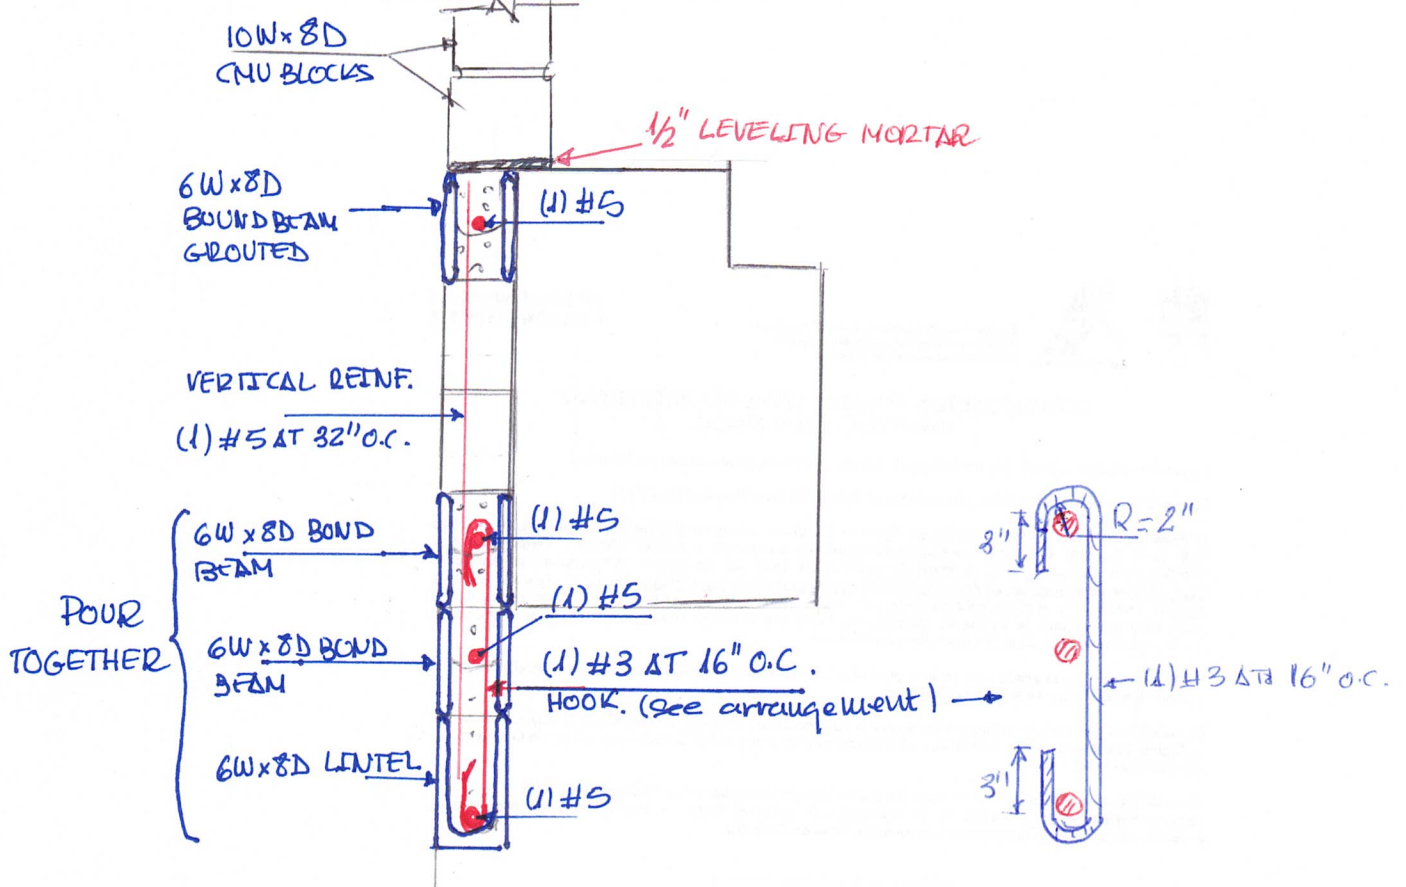 10W x 8D
CMU BLOCKS
1/2" LEVELING MORTAR
6W x 8D
BOUND BEAM
GROUTED
(1) #5
VERTICAL REINF.
(1) #5 AT 32" O.C.
6W x 8D BOND
BEAM
(1) #5
POUR
TOGETHER
(1) #5
6W x 8D BOND
BEAM
(1) #3 AT 16" O.C.
HOOK. (See arrangement)
6W x 8D LINTEL
(1) #5
3"
R=2"
(1) #3 AT 16" O.C.
3"